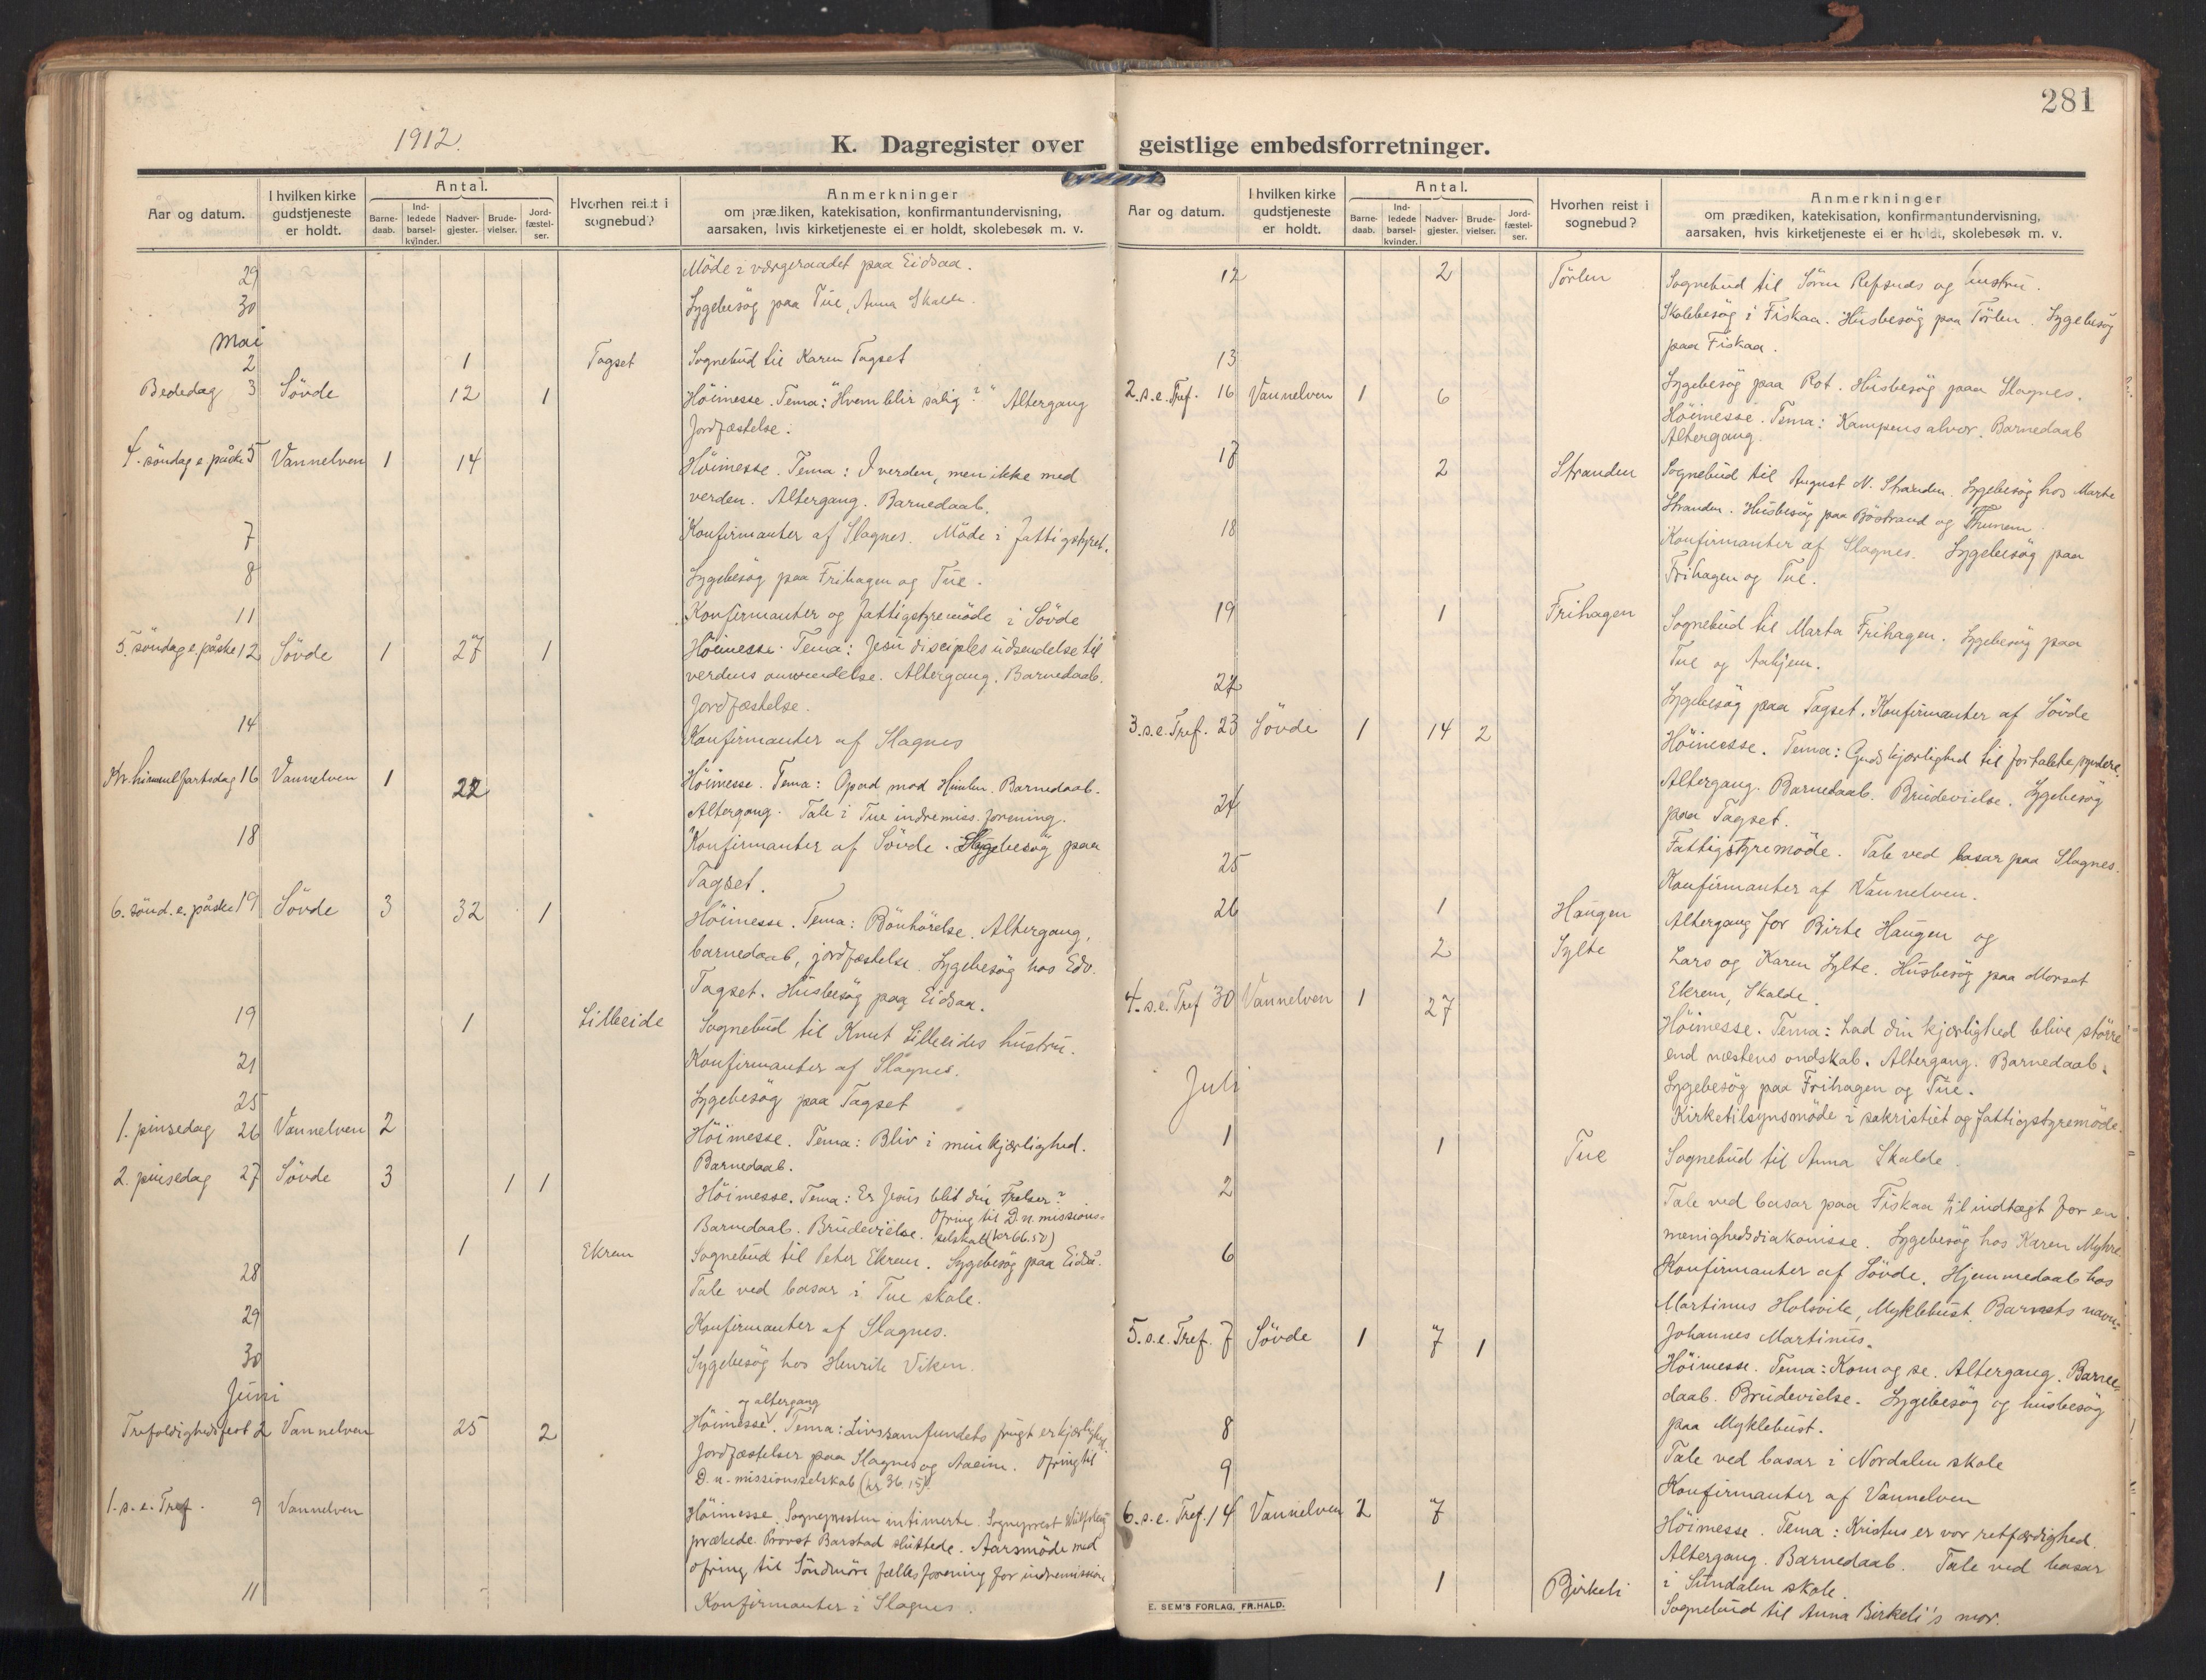 281
1912.
K. Dagregister over geistlige embedsforretninger.
Aar og datum.
I hvilken kirke gudstjeneste er holdt.
Antal.
Barne-daab.
Ind-ledede barsel-kvinder.
Nadver-gjester.
Brude-vielser.
Jord-fæstel-ser.
Hvorhen reist i sognebud?
Anmerkninger
om prædiken, katekisation, konfirmantundervisning,
aarsaken, hvis kirketjeneste ei er holdt, skolebesøk m. v.
29 Möde i værgeraadet paa Eidsaa.
30 Sygebesög paa Tue, Anna Skalde.
Mai
2 1 Tagset Sognebud til Karen Tagset
Bededag 3 Sövde 12 1 Höimesse. Tema: "Hvem blir salig?" Altergang
Jordfæstelse.
4. söndag e. påske 5 Vannelven 1 14 Höimesse. Tema: I verden, men ikke med
verden. Altergang. Barnedaab.
7 Konfirmanter af Slagnes. Möde i fattigstyret.
8 Sygebesög paa Frihagen og Tue.
11 Konfirmanter og fattigstyremöde i Sövde
5. söndag e. påske 12 Sövde 1 27 1 Höimesse. Tema: Jesu disciples udsendelse til
verdens omvendelse. Altergang. Barnedaab.
Jordfæstelse.
14 Konfirmanter af Slagnes
Kr. himmelfartsdag 16 Vannelven 1 22 Höimesse. Tema: Opad mod Himlen. Barnedaab.
Altergang. Tale i Tue indremiss. forening.
18 Konfirmanter af Sövde. Sygebesög paa
Tagset.
6. sönd. e. påske 19 Sövde 3 32 1 Höimesse. Tema: Bönhörelse. Altergang,
barnedaab, jordfæstelse. Sygebesög hos Edv.
Tagset. Husbesög paa Eidsaa.
19 1 Lilleeide Sognebud til Knut Lilleeides hustru.
21 Konfirmanter af Slagnes.
25 Sygebesög paa Tagset
1. pinsedag 26 Vannelven 2 Höimesse. Tema: Bliv i min kjærlighed.
Barnedaab.
2. pinsedag 27 Sövde 3 1 1 Höimesse. Tema: Er Jesus blit din Frelser?
Barnedaab. Brudevielse. Ofring til D. n. missions-
selskab (kr 66.50)
1 Ekrem Sognebud til Peter Ekrem. Sygebesög paa Eidså.
28 Tale ved basar i Tue skole.
29 Konfirmanter af Slagnes.
30 Sygebesög hos Henrik Viken.
Juni
og altergang
Trefoldighedsfest 2 Vannelven 25 2 Höimesse. Tema: Livssamfundets frugt er kjærlighed.
Jordfæstelser paa Slagnes og Aaeim. Ofring til
D. n. missionsselskab (kr 36.15).
1. s. e. Tref. 9 Vannelven Höimesse. Sognepresten intimerte. Sogneprest
prækede. Provst Barstad sluttede. Aarsmöde med
ofring til Söndmöre fællesforening for indremission
11 Konfirmanter i Slagnes.
Aar og datum.
I hvilken kirke gudstjeneste er holdt.
Antal.
Barne-daab.
Ind-ledede barsel-kvinder.
Nadver-gjester.
Brude-vielser.
Jord-fæstel-ser.
Hvorhen reist i sognebud?
Anmerkninger
om prædiken, katekisation, konfirmantundervisning,
aarsaken, hvis kirketjeneste ei er holdt, skolebesøk m. v.
12 2 Törlen Sognebud til Sören Refsnes og hustru.
Skolebesög i Fiskaa. Husbesög paa Törlen. Sygebesög
paa Fiskaa.
13 Sygebesög paa Rot. Husbesög paa Slagnes.
2. s. e. Tref. 16 Vannelven 1 6 Höimesse. Tema: Kampens alvor. Barnedaab
Altergang.
17 2 Stranden Sognebud til August N. Stranden. Sygebesög hos Marte
Stranden. Husbesög paa Böstrand og Thunem.
18 Konfirmanter af Slagnes. Sygebesög paa
Frihagen og Tue.
19 1 Frihagen Sognebud til Marta Frihagen. Sygebesög paa
Tue og Aahjem.
22 Sygebesög paa Tagset. Konfirmanter af Sövde
3. s. e. Tref. 23 Sövde 1 14 2 Höimesse. Tema: Guds kjærlighed til fortabte syndere.
Altergang. Barnedaab. Brudevielse. Sygebesög
paa Tagset.
24 Fattigstyremöde. Tale ved basar paa Slagnes.
25 Konfirmanter af Vannelven.
26 1 Haugen Altergang for Birte Haugen og
2 Sylte Lars og Karen Sylte. Husbesög paa Morset
Ekrem, Skalde.
4. s. e. Tref 30 Vannelven 1 27 Höimesse. Tema: Lad din kjærlighed blive större
end næstens ondskab. Altergang. Barnedaab.
Sygebesög paa Frihagen og Tue.
Kirketilsynsmöde i sakristiet og fattigstyremöde.
Juli
1 1 Tue Sognebud til Anna Skalde.
2 Tale ved basar paa Fiskaa til indtægt for en
menighedsdiakonisse. Sygebesög hos Karen Myhre
6 Konfirmanter af Sövde. Hjemmedaab hos
Martinus Holsvik, Myklebust. Barnets navn:
Johannes Martinus.
5. s. e. Tref. 7 Sövde 1 7 1 Höimesse. Tema: Kom og se. Altergang. Barne-
daab. Brudevielse. Sygebesög og husbesög
paa Myklebust.
8 Tale ved basar i Nordalen skole
9 Konfirmanter af Vannelven
6. s. e. Tref. 14 Vannelven 2 7 Höimesse. Tema: Kristus er vor retfærdighed.
Altergang. Barnedaab. Tale ved basar
i Sundalen skole.
1 Birkeli Sognebud til Anna Birkeli's mor.
E. SEM'S FORLAG, FR.HALD.